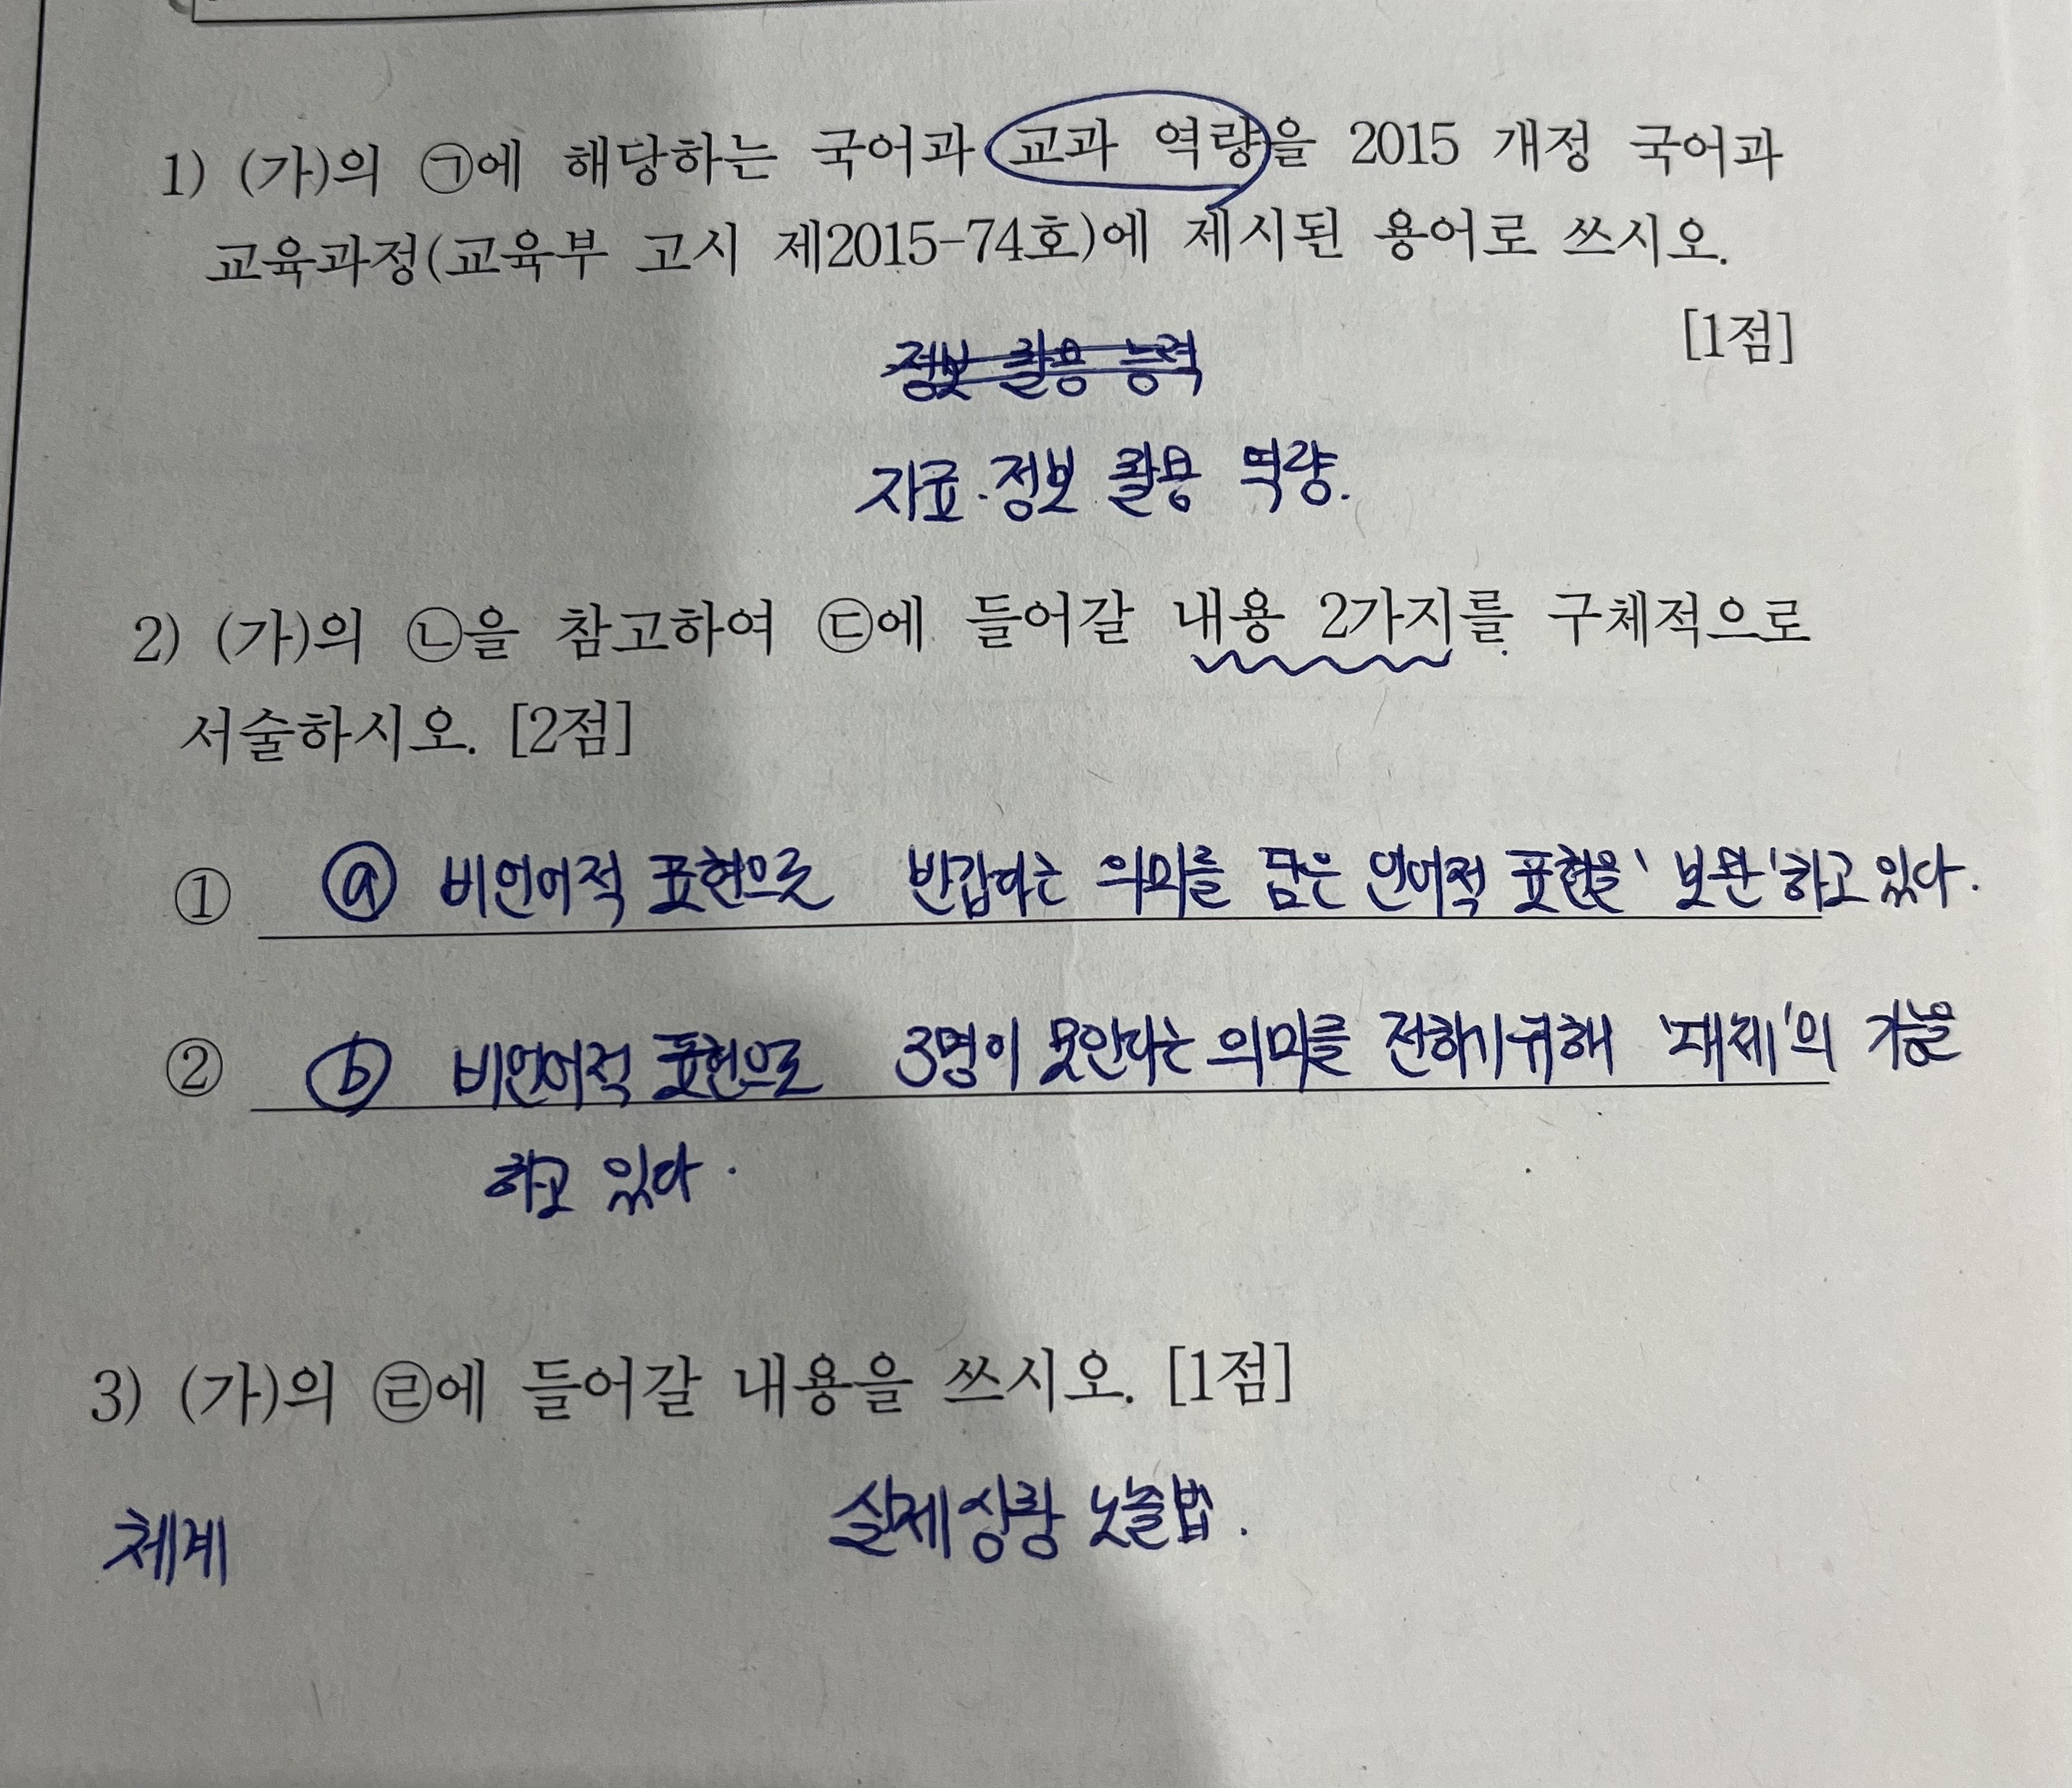 1) (가)의 ㉠에 해당하는 국어과 교과 역량을 2015 개정 국어과
교육과정(교육부 고시 제2015-74호)에 제시된 용어로 쓰시오.
[1점]
정보 활용 능력
자료·정보 활용 역량.
2) (가)의 ㉡을 참고하여 ㉢에 들어갈 내용 2가지를 구체적으로
서술하시오. [2점]
① ⓐ 비언어적 표현으로 반갑다는 의미를 담은 언어적 표현을 '보완'하고 있다.
② ⓑ 비언어적 표현으로 3명이 못온다는 의미를 전하기위해 '대체'의 기능을
하고 있다.
3) (가)의 ㉣에 들어갈 내용을 쓰시오. [1점]
체계
실제상황 노출법.